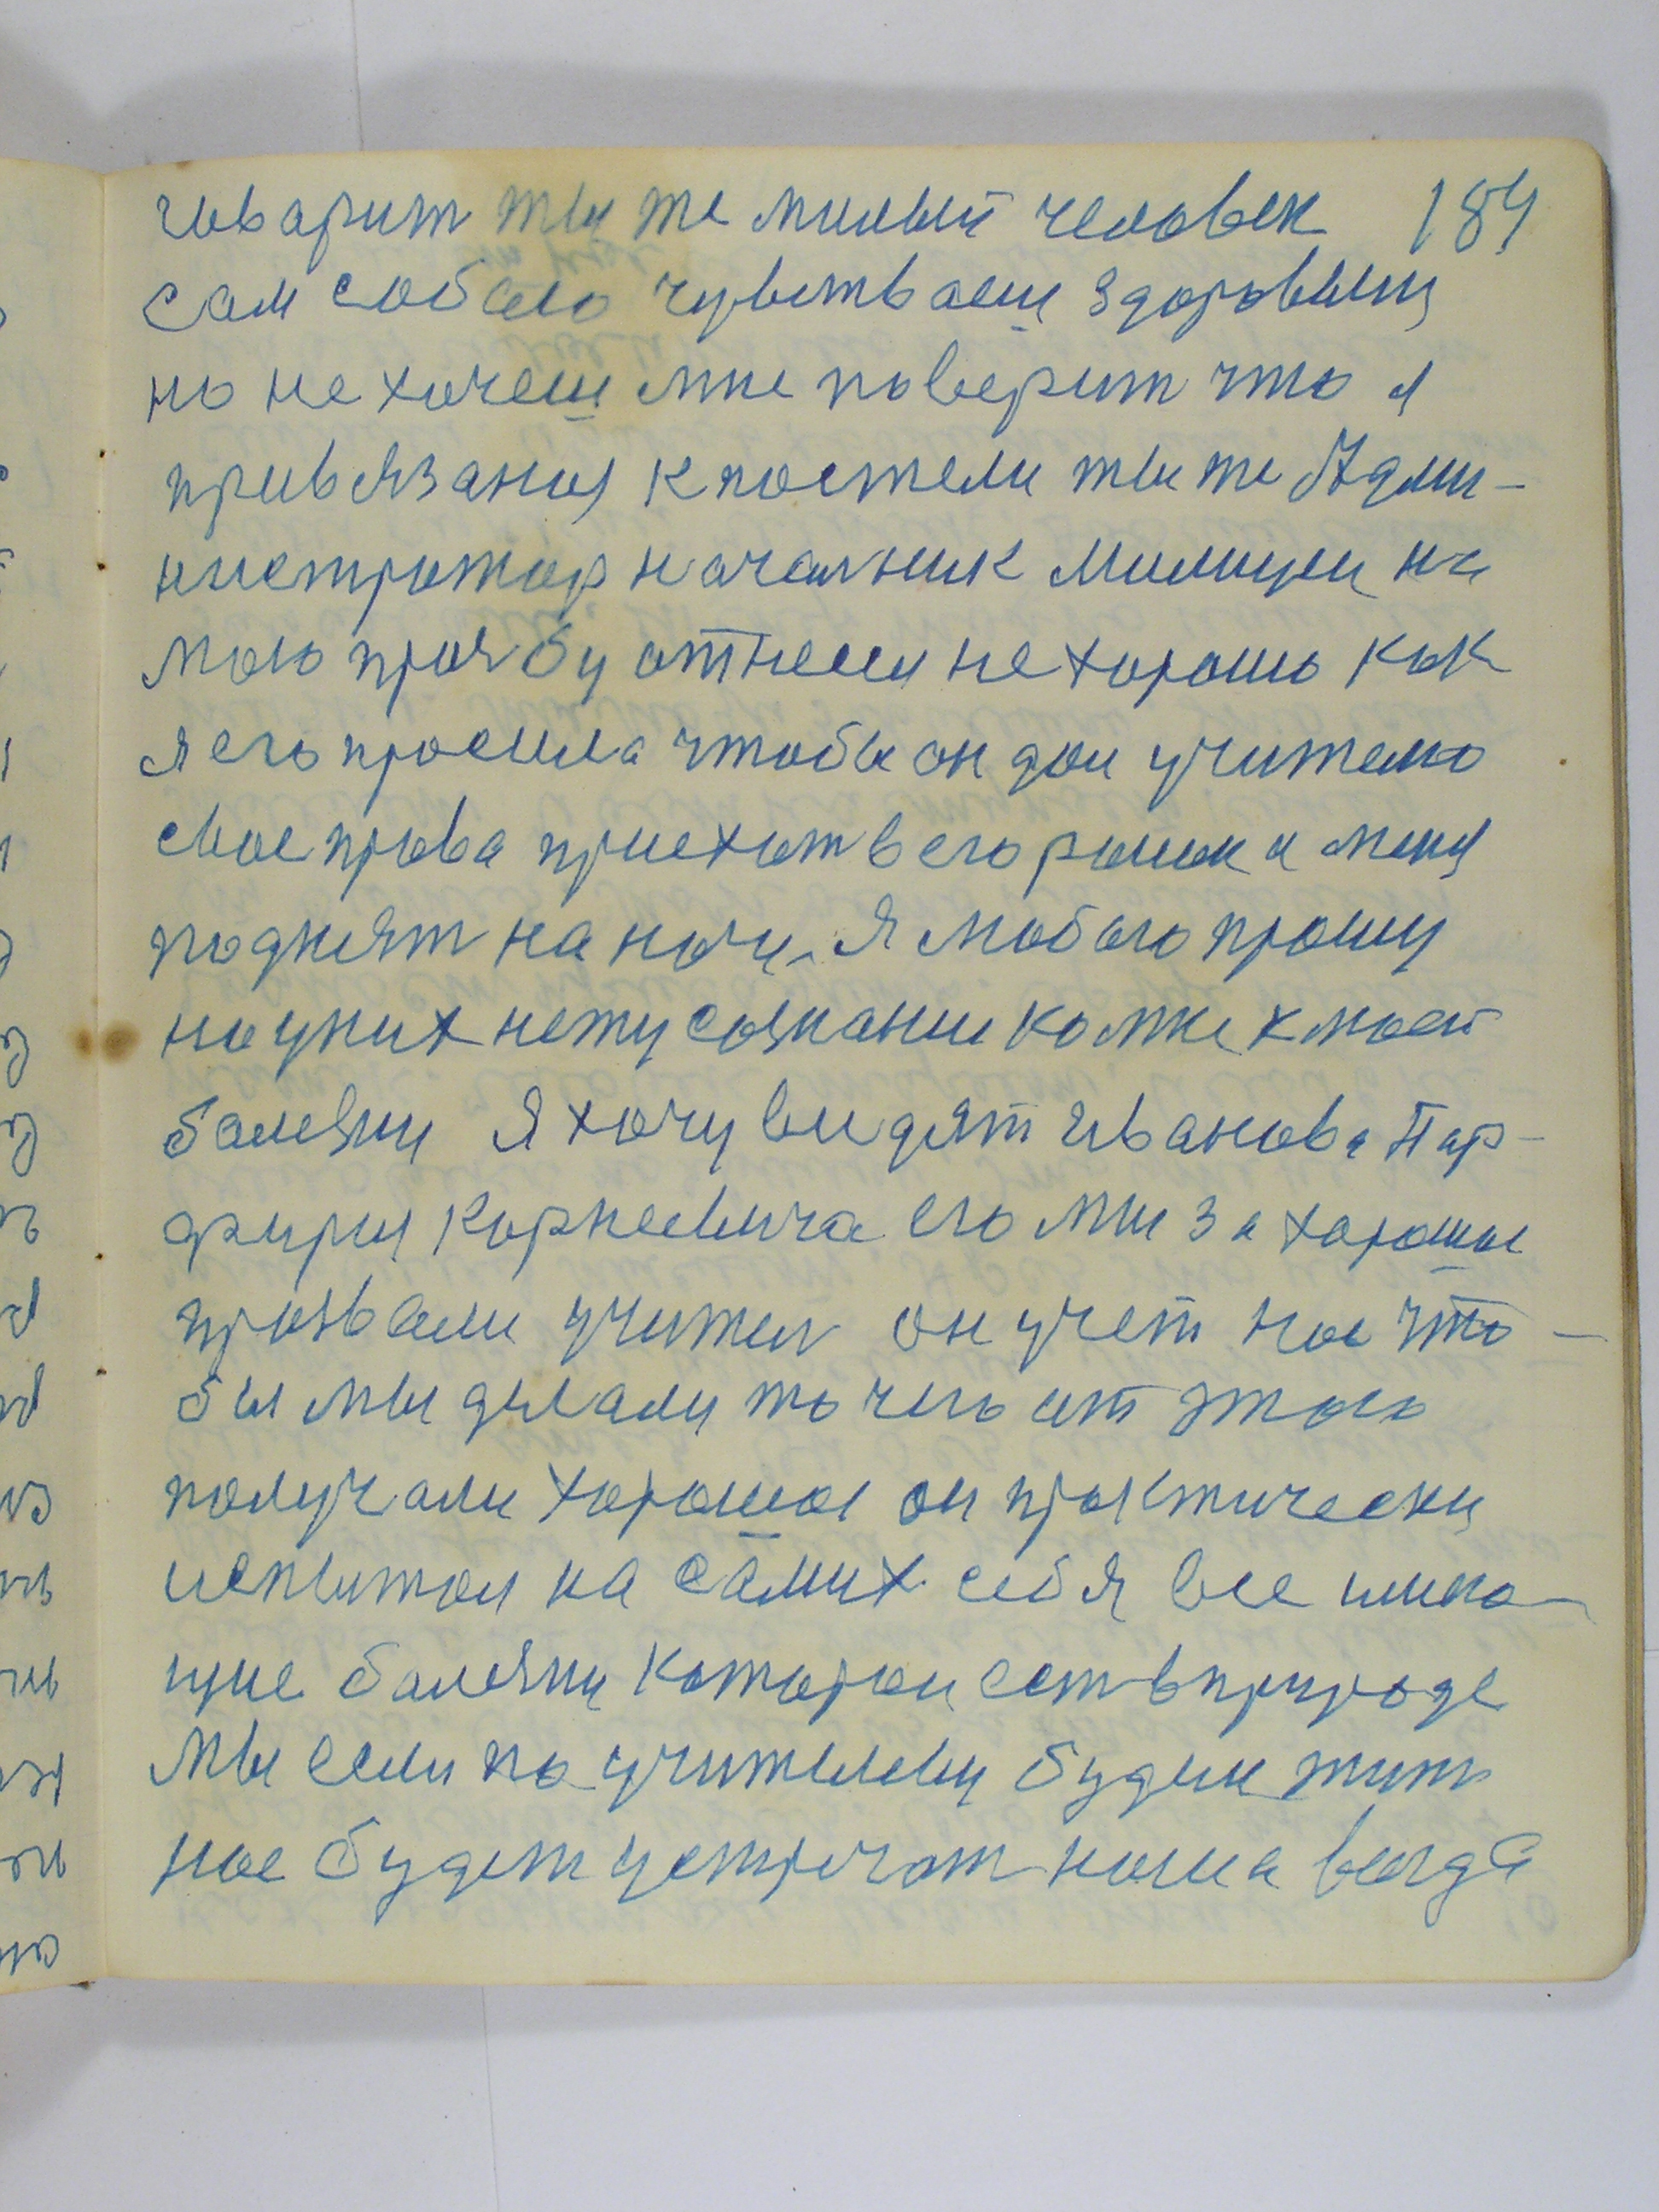 говарит ты же милый человек 184
сам собаю чувстваеш здоровым
но не хочеш мне поверит что я
привязаная к постели ты же Адми-
нистратор началник милиции на
маю прозбу отнесся не хорошо как
я его просила чтобы он дал учителю
свое права приехат в его раион и меня
поднят на ноги. Я любого прошу
но у них нету сознание ко мне к моей
болезни Я хочу видят Иванова Пар-
фирия Корнеевича его мы за хорошие
прозвали учител он учет нас что-
бы мы делали то чего от этого
получали хорошое он практически
испытал на самих себя все имею-
щие болезни которои ест в природе
Мы если по учителеву будем жить
нас будет устречат наша вегда